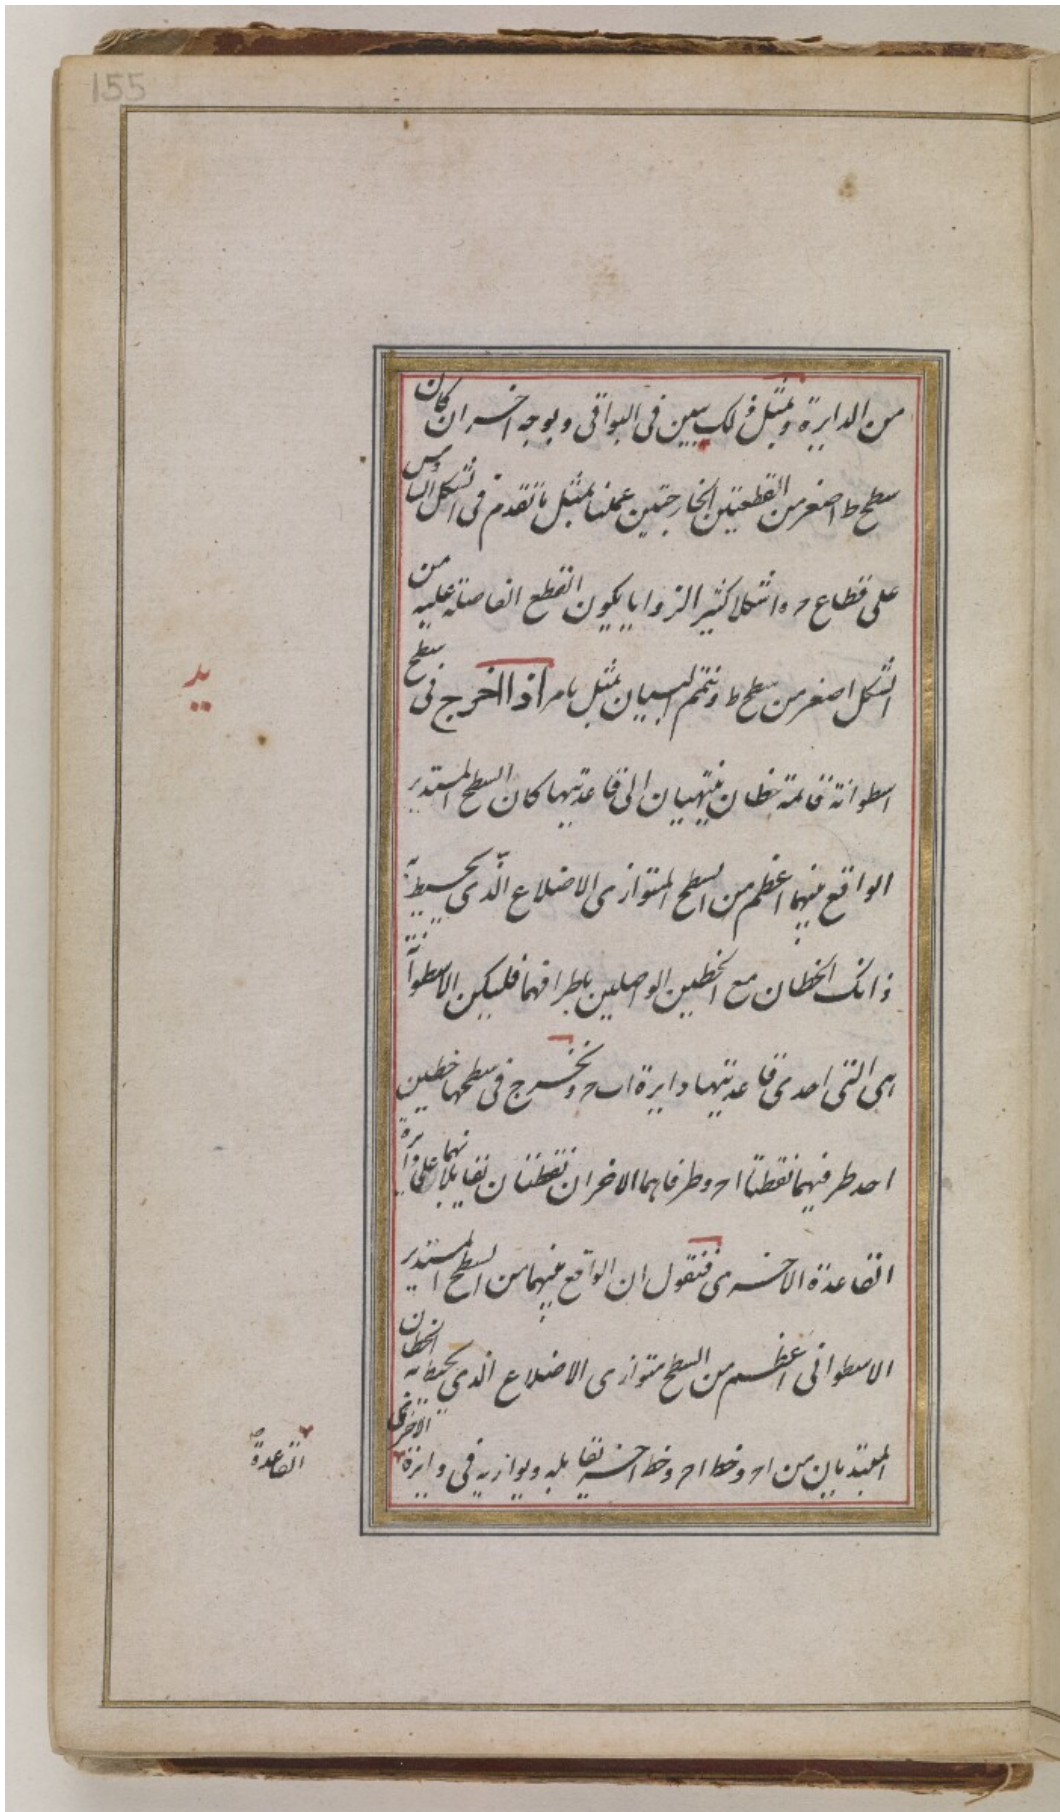 155
من الدايرة وبمثل ذلك يبين فى البواقى وبوجه اخر ان كان
سطح ط اصغر من القطعتين الخارجتين عملنا بمثل ما تقدم فى الشكل السادس
على قطاع ح ه ا شكلا كثير الزوايا يكون القطع الفاصلة عليه من
الشكل اصغر من سطح ط ونتمم البيان بمثل ما مر اذا اخرج فى سطح
يد
اسطوانة قائمة خطان ينتهيان الى قاعدتيها كان السطح المستدير
الواقع بينهما اعظم من السطح المتوازى الاضلاع الذى يحيط به
ذانك الخطان مع الخطين الواصلين باطرافهما فليكن الاسطوانة
هى التى احدى قاعدتيها دايرة اب ح ونخرج فى سطحها خطين
احد طرفيهما نقطتا ا ح وطرفاهما الاخران نقطتان تقابلانهما على دايرة
القاعدة الاخرى فنقول ان الواقع بينهما من السطح المستدير
الاسطوانى اعظم من السطح متوازى الاضلاع الذى يحيط به الخطان
المبتديان من ا ح وخط ا ح وخط اخر يقابله ويوازيه فى دايرة الاخرى
القاعدة صح